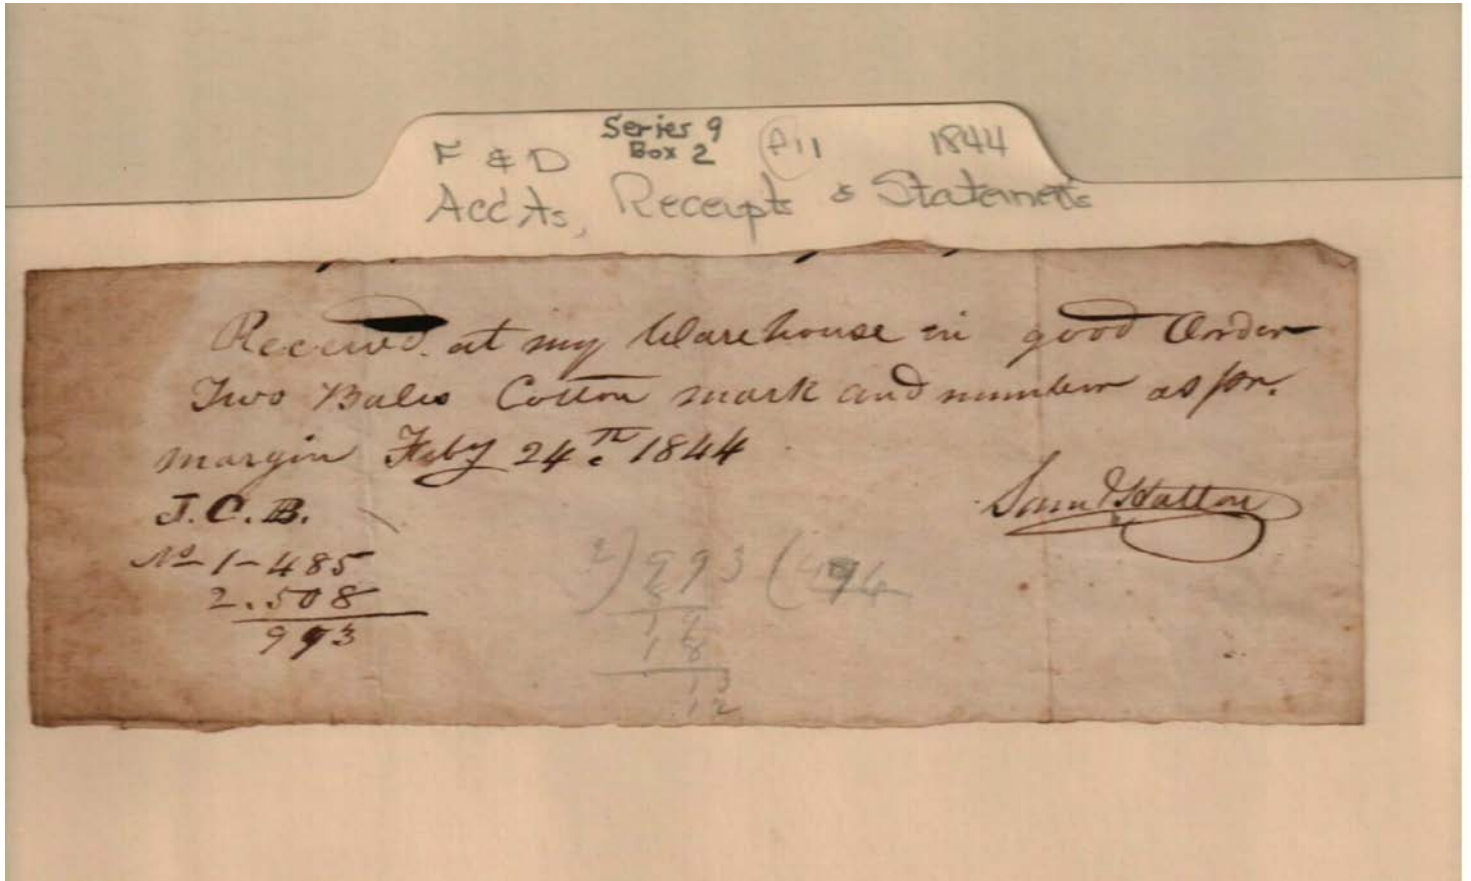 Series 9
F & D Box 2 f11 1844
Acc'ts, Receipts & Statements
Received at my Warehouse in good Order
Two Bales Cotton mark and number as pr.
margin Feby 24th 1844
J.C.B. Saml Hatton
No 1-485
2.508
993
2)993(496
8
19
18
13
12